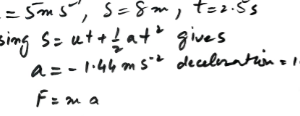 = 5 m s⁻¹, S = 8 m, t = 2.5 s
sing S = ut + ½ at² gives
a = - 1.44 m s⁻² deceleration = 1.
F = m a